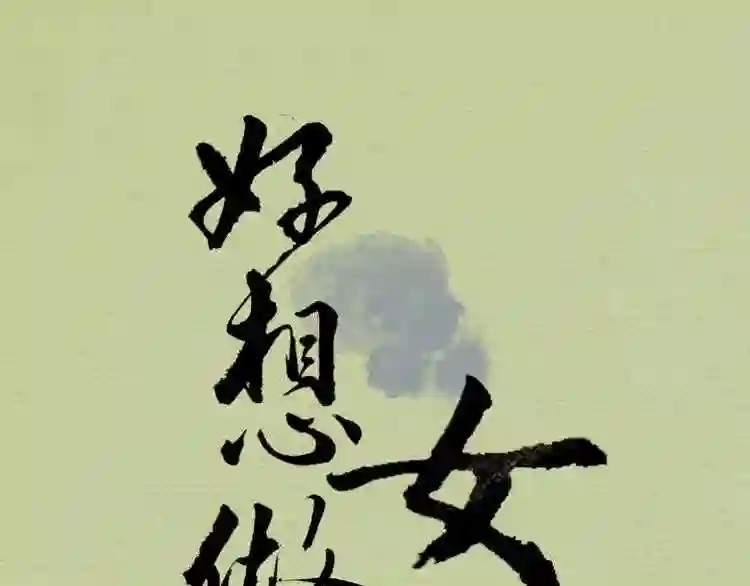 好想做
女